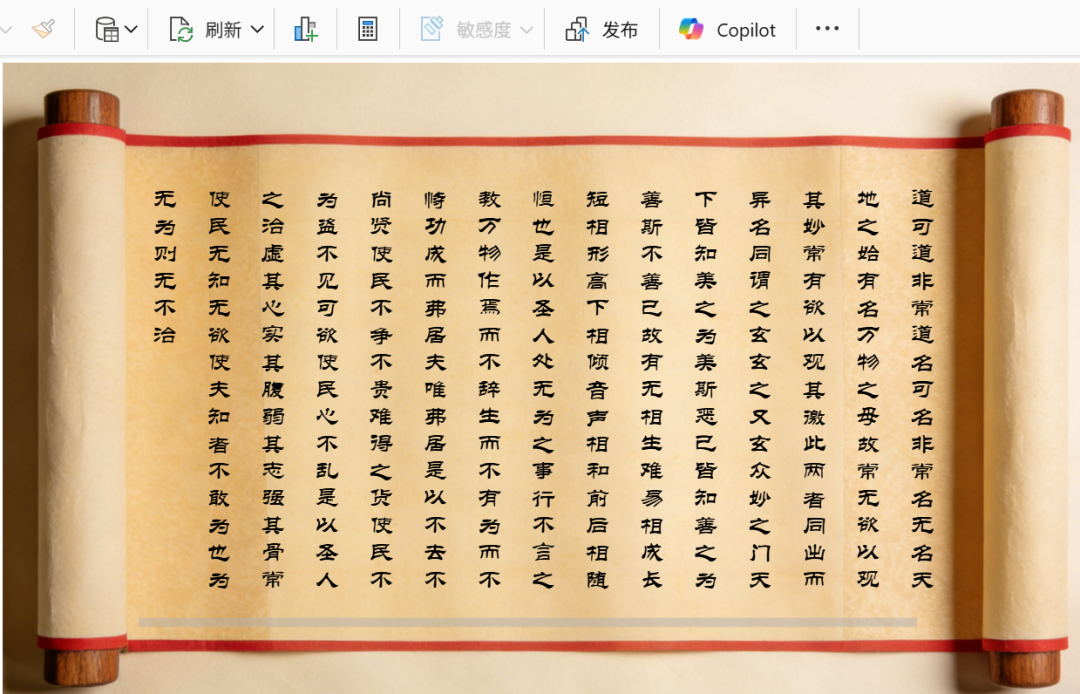 刷新
敏感度
发布
Copilot
道可道非常道名可名非常名无名天
地之始有名万物之母故常无欲以观
其妙常有欲以观其徼此两者同出而
异名同谓之玄玄之又玄众妙之门天
下皆知美之为美斯恶已皆知善之为
善斯不善已故有无相生难易相成长
短相形高下相倾音声相和前后相随
恒也是以圣人处无为之事行不言之
教万物作焉而不辞生而不有为而不
恃功成而弗居夫唯弗居是以不去不
尚贤使民不争不贵难得之货使民不
为盗不见可欲使民心不乱是以圣人
之治虚其心实其腹弱其志强其骨常
使民无知无欲使夫知者不敢为也为
无为则无不治